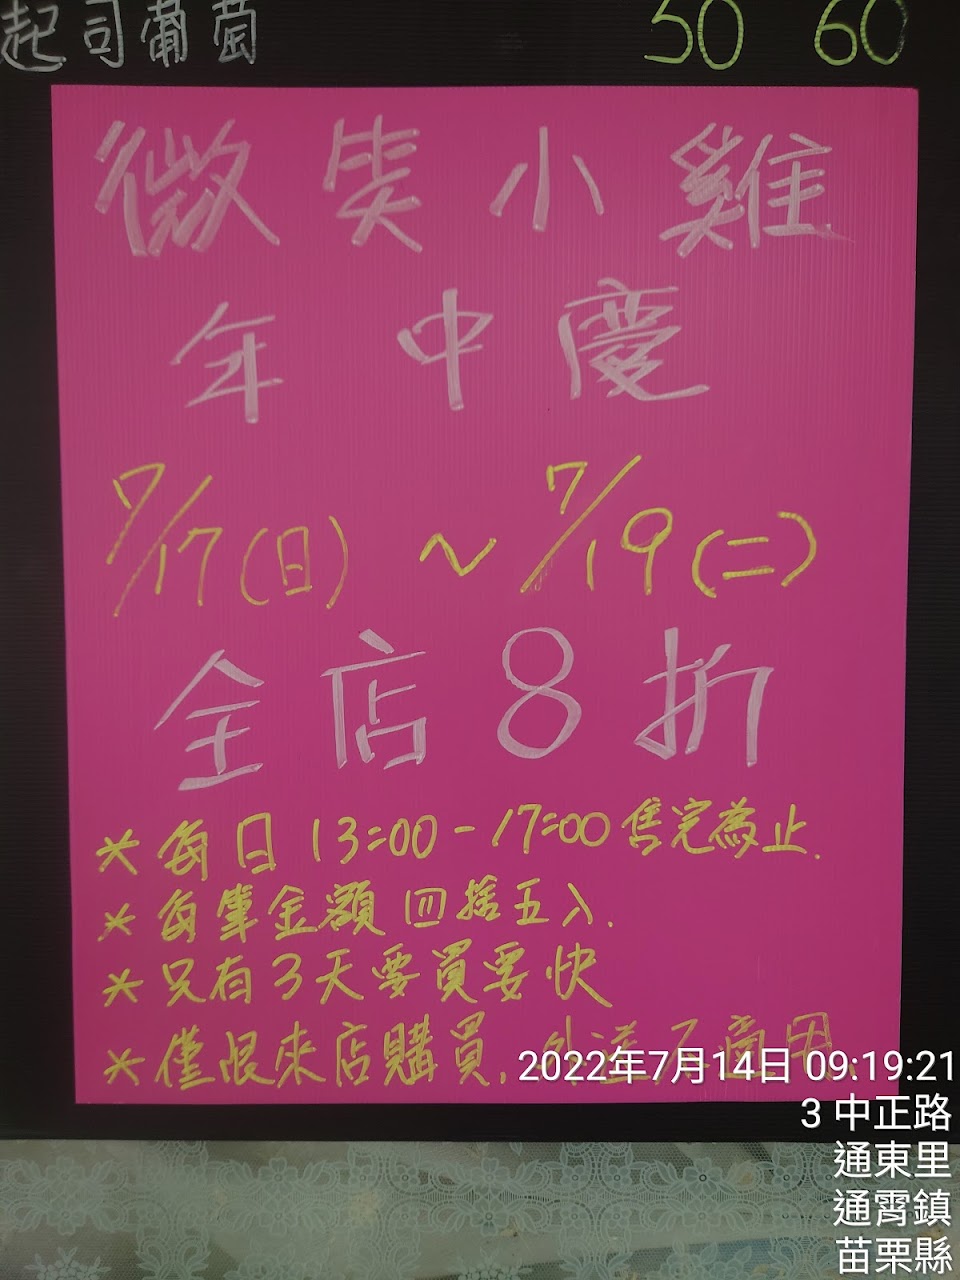 起司葡萄 50 60
微笑小雞
年中慶
7/17(日)~7/19(二)
全店8折
*每日13:00-17:00售完為止.
*每筆金額四捨五入.
*只有3天要買要快
*僅限來店購買,外送不適用
2022年7月14日 09:19:21
3 中正路
通東里
通霄鎮
苗栗縣